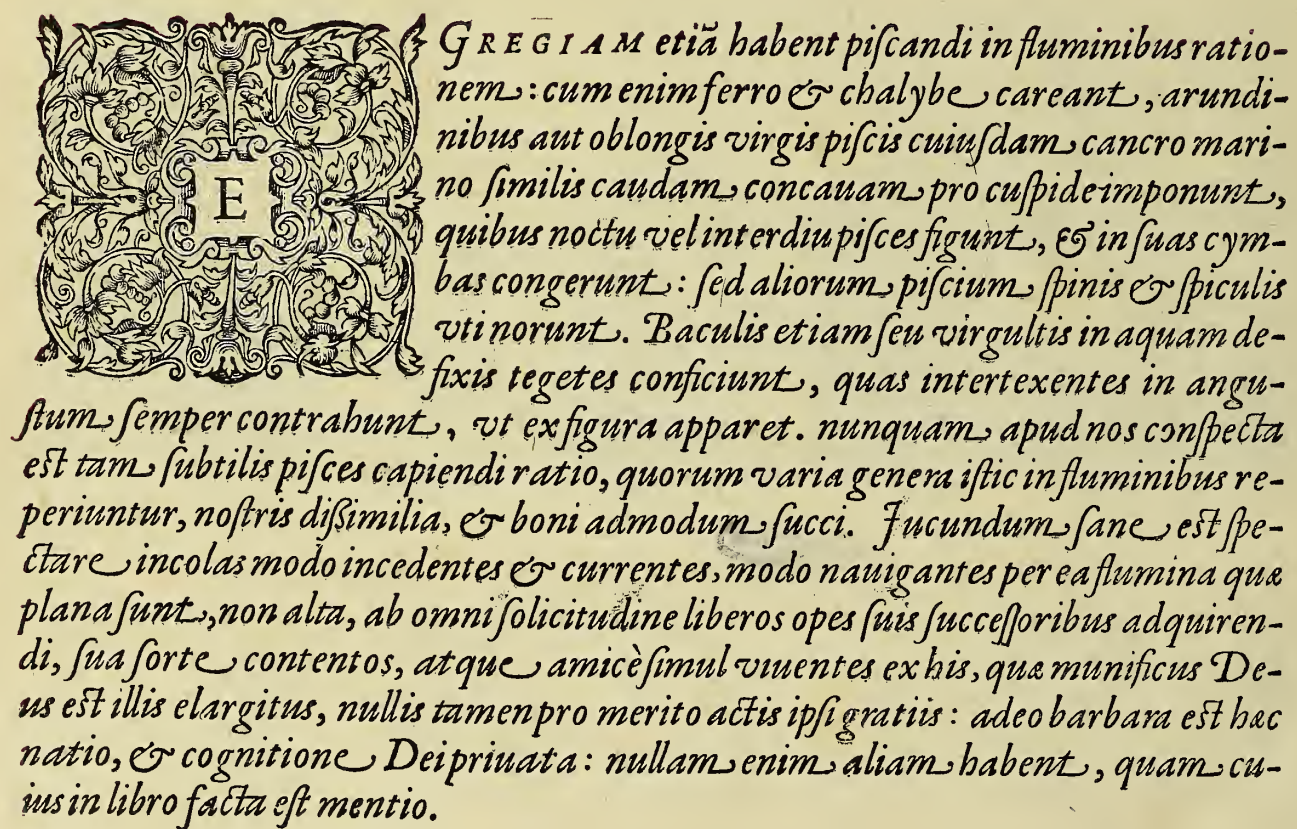 EGREGIAM etiã habent piſcandi in fluminibus ratio-
nem: cum enim ferro & chalybe careant, arundi-
nibus aut oblongis virgis piſcis cuiuſdam cancro mari-
no ſimilis caudam concauam pro cuſpide imponunt,
quibus noctu vel interdiu piſces figunt, & in ſuas cym-
bas congerunt: ſed aliorum piſcium ſpinis & ſpiculis
vti norunt. Baculis etiam ſeu virgultis in aquam de-
fixis tegetes conficiunt, quas intertexentes in angu-
ſtum ſemper contrahunt, vt ex figura apparet. nunquam apud nos conſpecta
eſt tam ſubtilis piſces capiendi ratio, quorum varia genera iſtic in fluminibus re-
periuntur, noſtris diſsimilia, & boni admodum ſucci. Jucundum ſane eſt ſpe-
ctare incolas modo incedentes & currentes, modo nauigantes per ea flumina quæ
plana ſunt, non alta, ab omni ſolicitudine liberos opes ſuis ſucceſſoribus adquiren-
di, ſua ſorte contentos, atque amicè ſimul viuentes ex his, quæ munificus De-
us eſt illis elargitus, nullis tamen pro merito actis ipſi gratiis: adeo barbara eſt hæc
natio, & cognitione Dei priuata: nullam enim aliam habent, quam cu-
ius in libro facta eſt mentio.